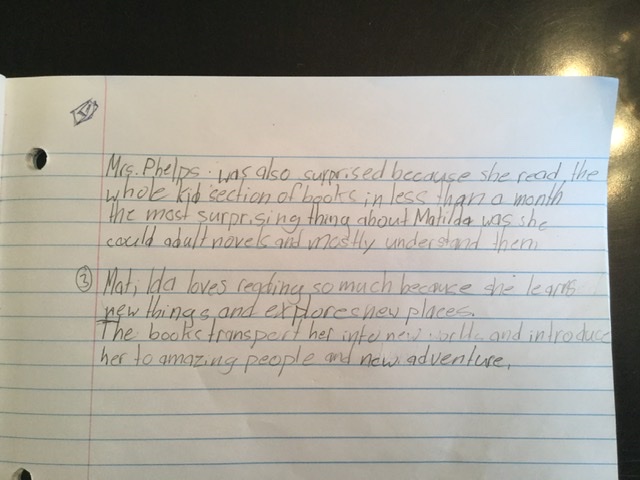 Mrs. Phelps was also surprised because she read the
whole kid section of books in less than a month
the most surprising thing about Matilda was she
could adult novels and mostly understand them
③ Matilda loves reading so much because she learns
new things, and explores new places.
The books transport her into new and introduce
her to amazing people and new adventure.